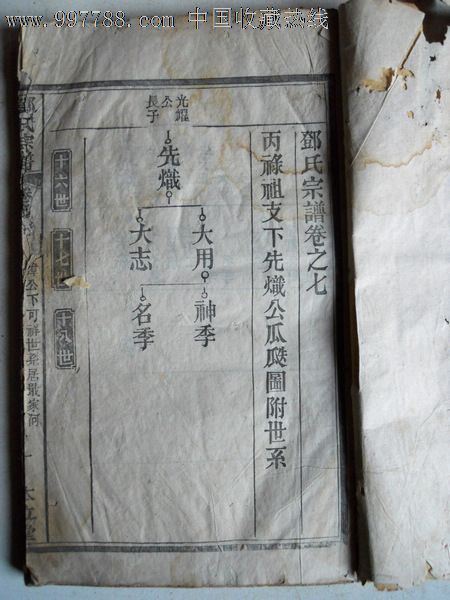 www.997788.com 中国收藏热线
鄧氏宗譜卷之七
丙祿祖支下先熾公瓜瓞圖附世系
光耀
公
長子
先熾
大用
大志
神季
名季
十六世
十七世
十八世
鄧氏宗譜